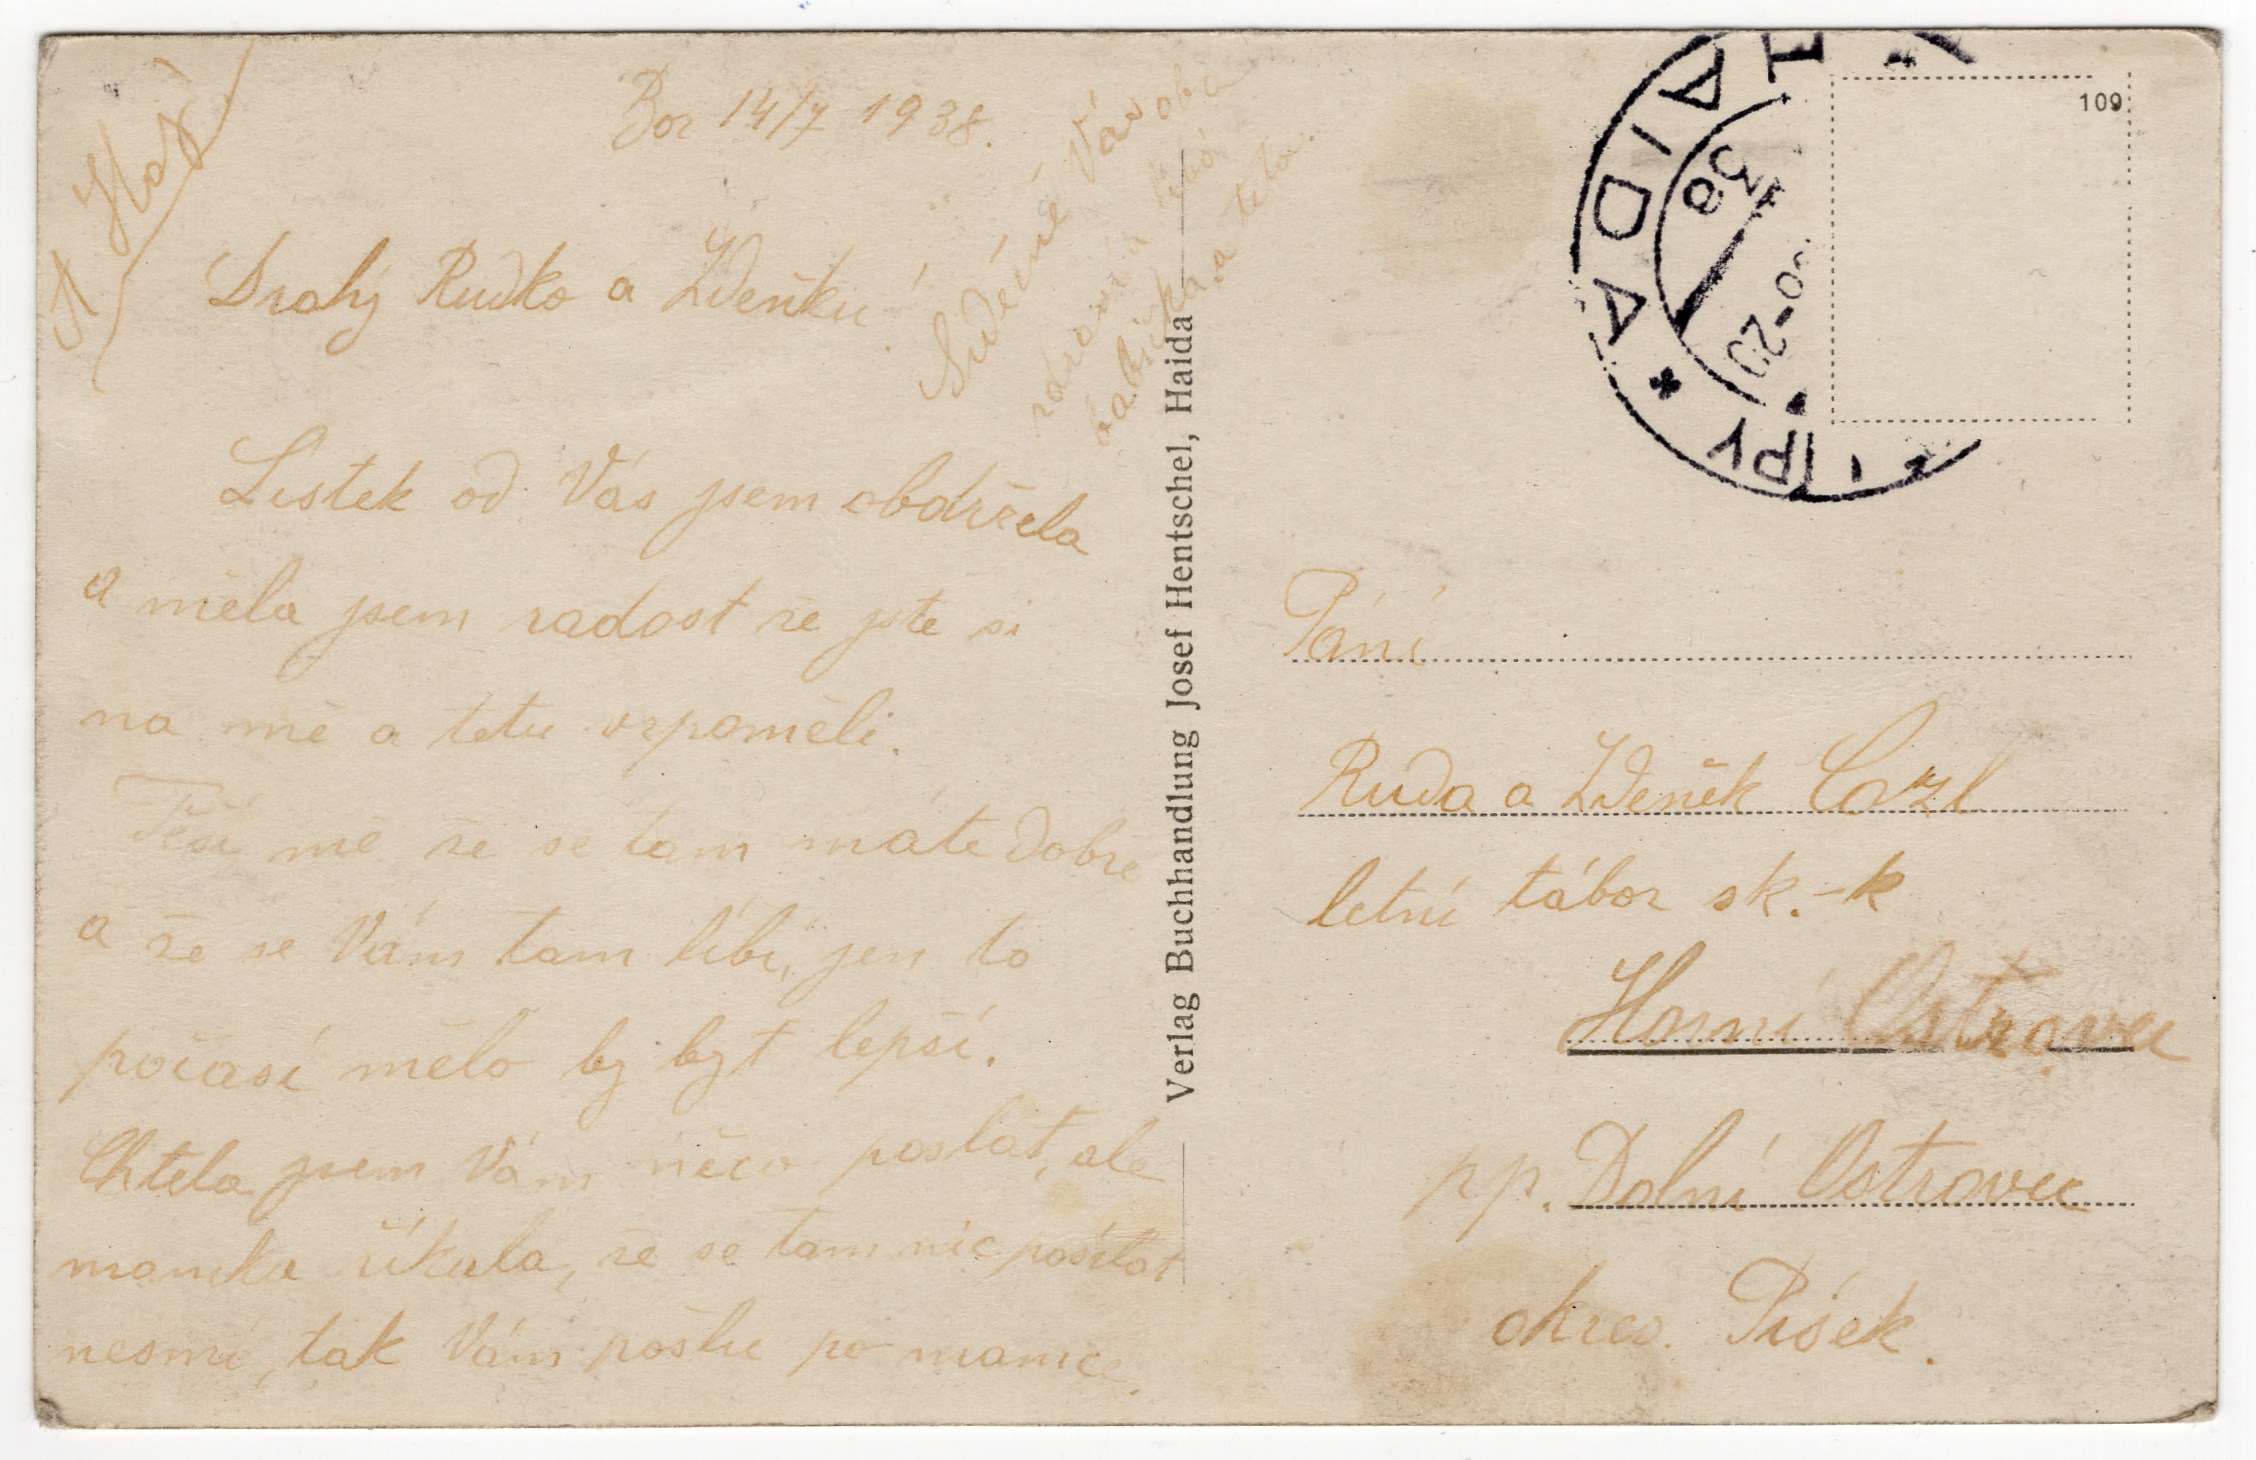 Bor 14/7 1938.
Drahý Rudko a Zdeňku!
Lístek od Vás jsem obdržela
a měla jsem radost že jste si
na mě a tetu vzpoměli.
Těší mě že se tam máte dobře
a že se Vám tam líbí, jen to
počasí mělo by být lepší.
Chtěla jsem Vám něco poslat, ale
mamka říkala, že se tam nic posílat
nesmí, tak Vám pošlu po mamce.
Srdečně Vás oba
zdraví a líbá
babička a teta.
Verlag Buchhandlung Josef Hentschel, Haida
109
HAIDA
38
-20
Páni
Ruda a Zdeněk
letní tábor sk.-k
Horní Ostrovec
pp. Dolní Ostrovec
okres. Písek.